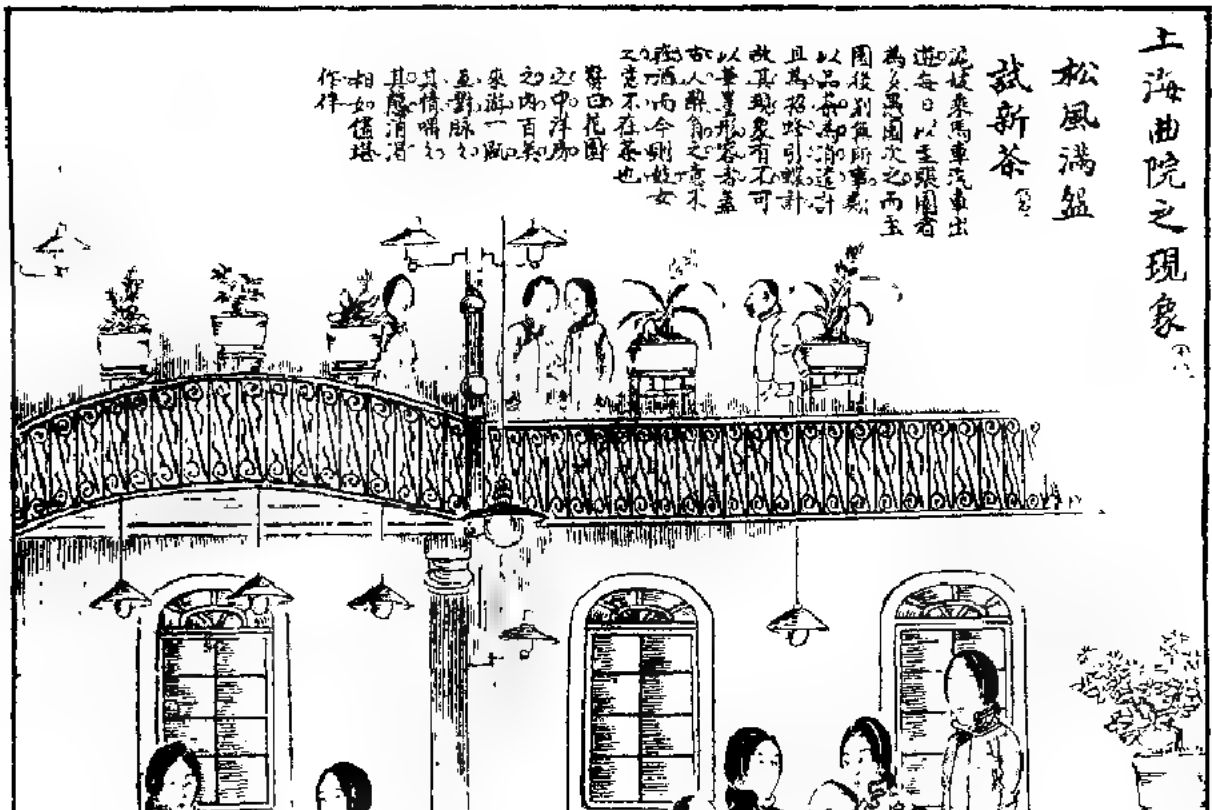 上海曲院之現象
松風滿盌
試新茶
滬妓乘馬車汽車出
遊每日必至張園者
為多愚園次之而至
園後別無所事類
以品茶為消遣計
且為招蜂引蝶計
故其現象有不可
以筆墨形容者蓋
古人醉翁之意不
在酒而今則妓女
之意不在茶也
贊曰花園
之中洋房
之內百氣
來游一風
並對脉久
其情喁久
其態消渴
相如儘堪
作伴